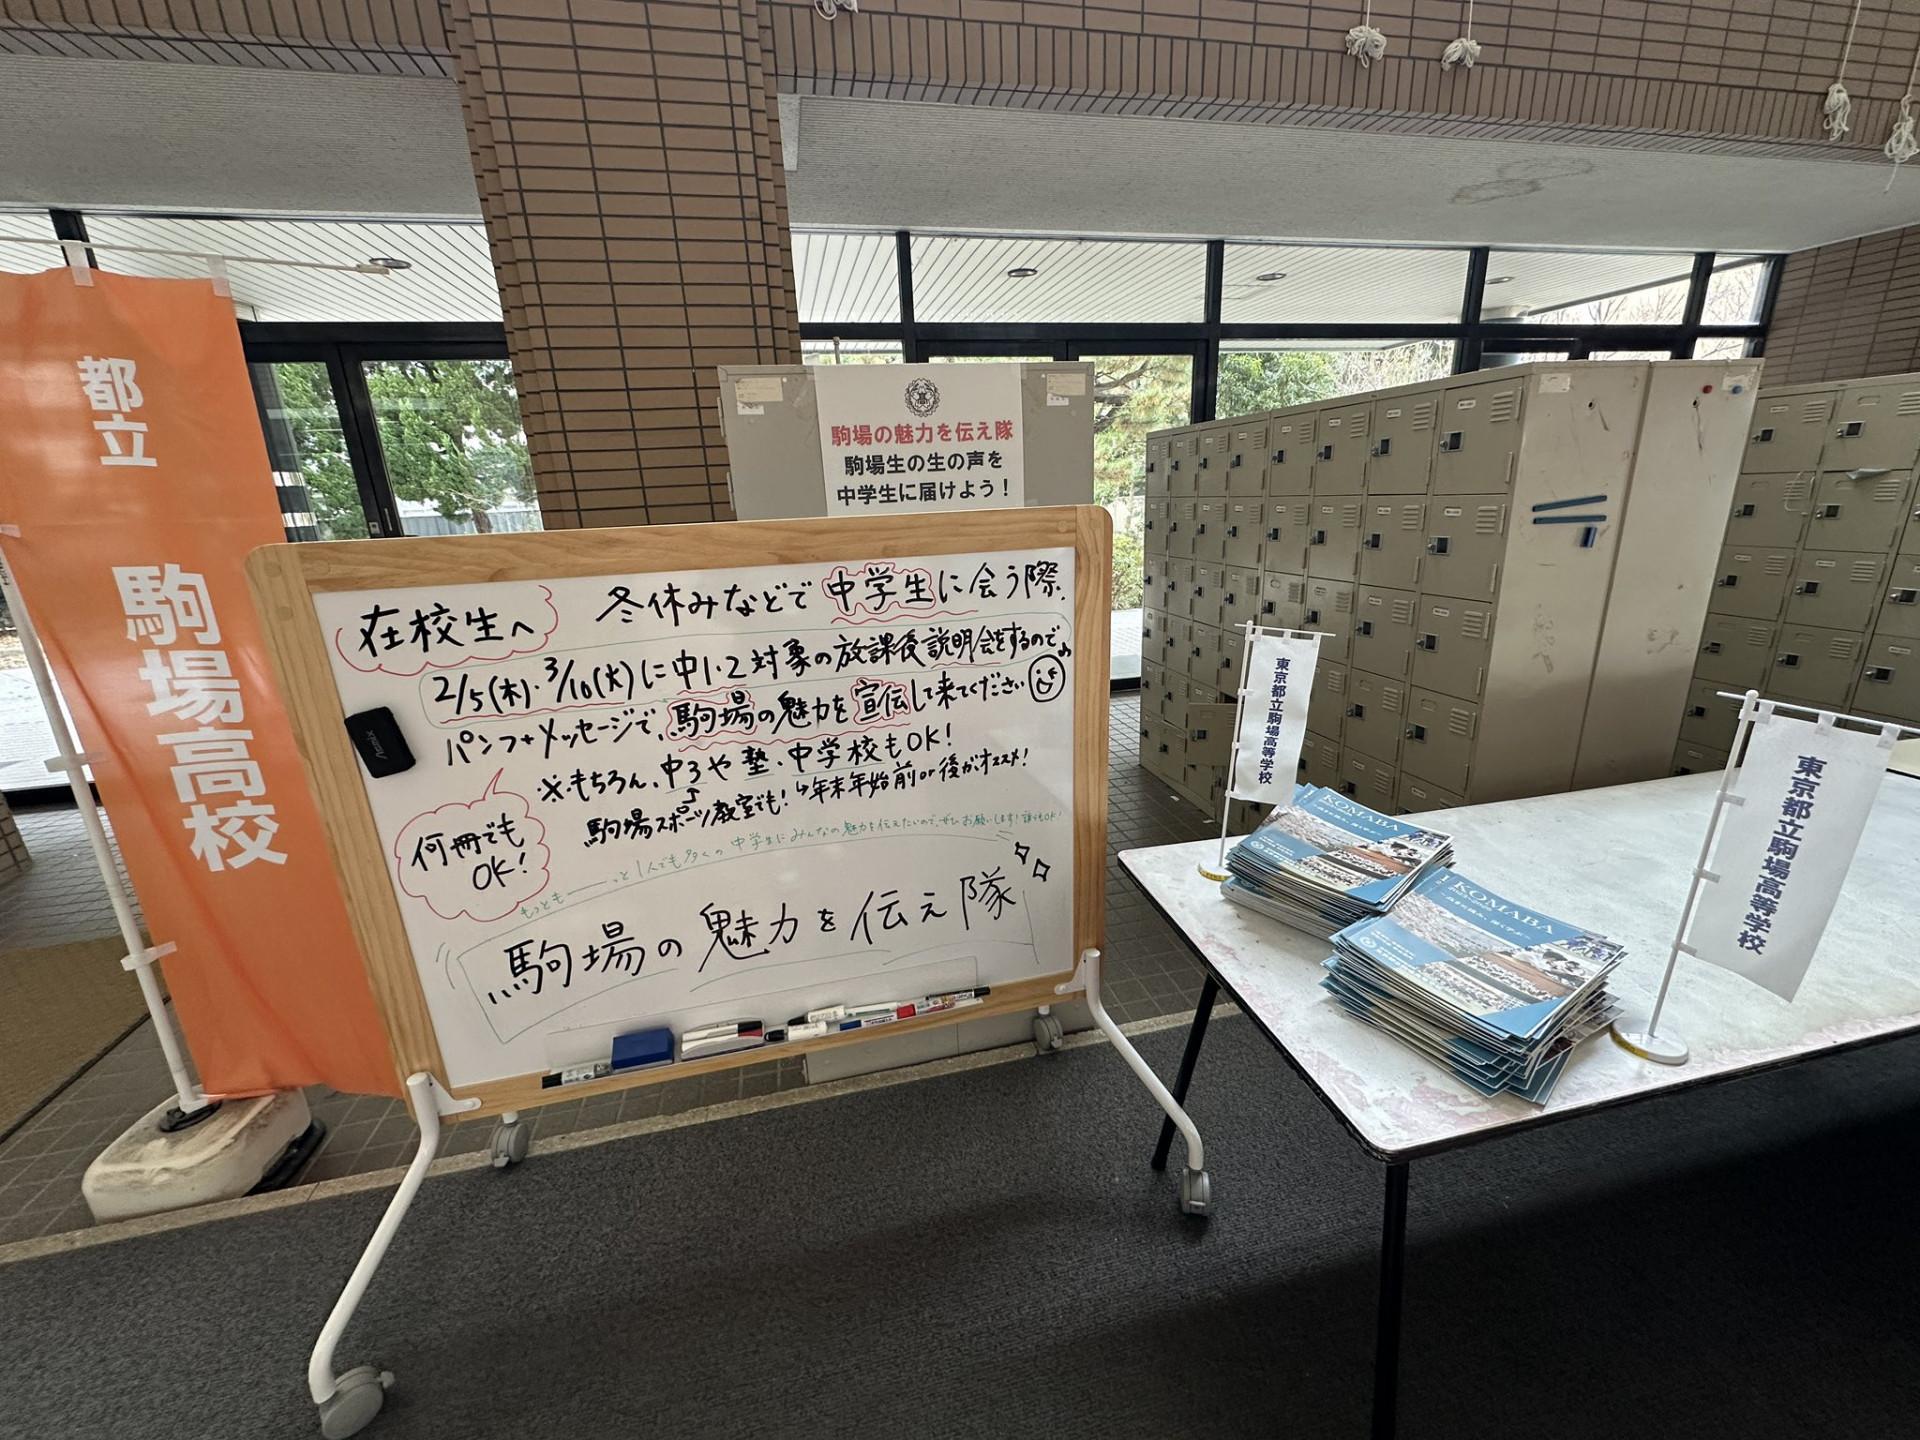 都立 駒場高校
駒場の魅力を伝え隊
駒場生の生の声を
中学生に届けよう！
在校生へ
冬休みなどで中学生に会う際、
2/5(木)・3/10(火)に中1・2対象の放課後説明会をするので、
パンフ+メッセージで、駒場の魅力を宣伝して来てください
※もちろん、中3や塾・中学校もOK！
駒場スポーツ教室でも！↳年末年始前or後がオススメ！
何冊でも
OK！
もっともーっと1人でも多くの中学生にみんなの魅力を伝えたいので、ぜひお願いします！誰でもOK！
駒場の魅力を伝え隊
東京都立駒場高等学校
東京都立駒場高等学校
KOMABA
KOMABA